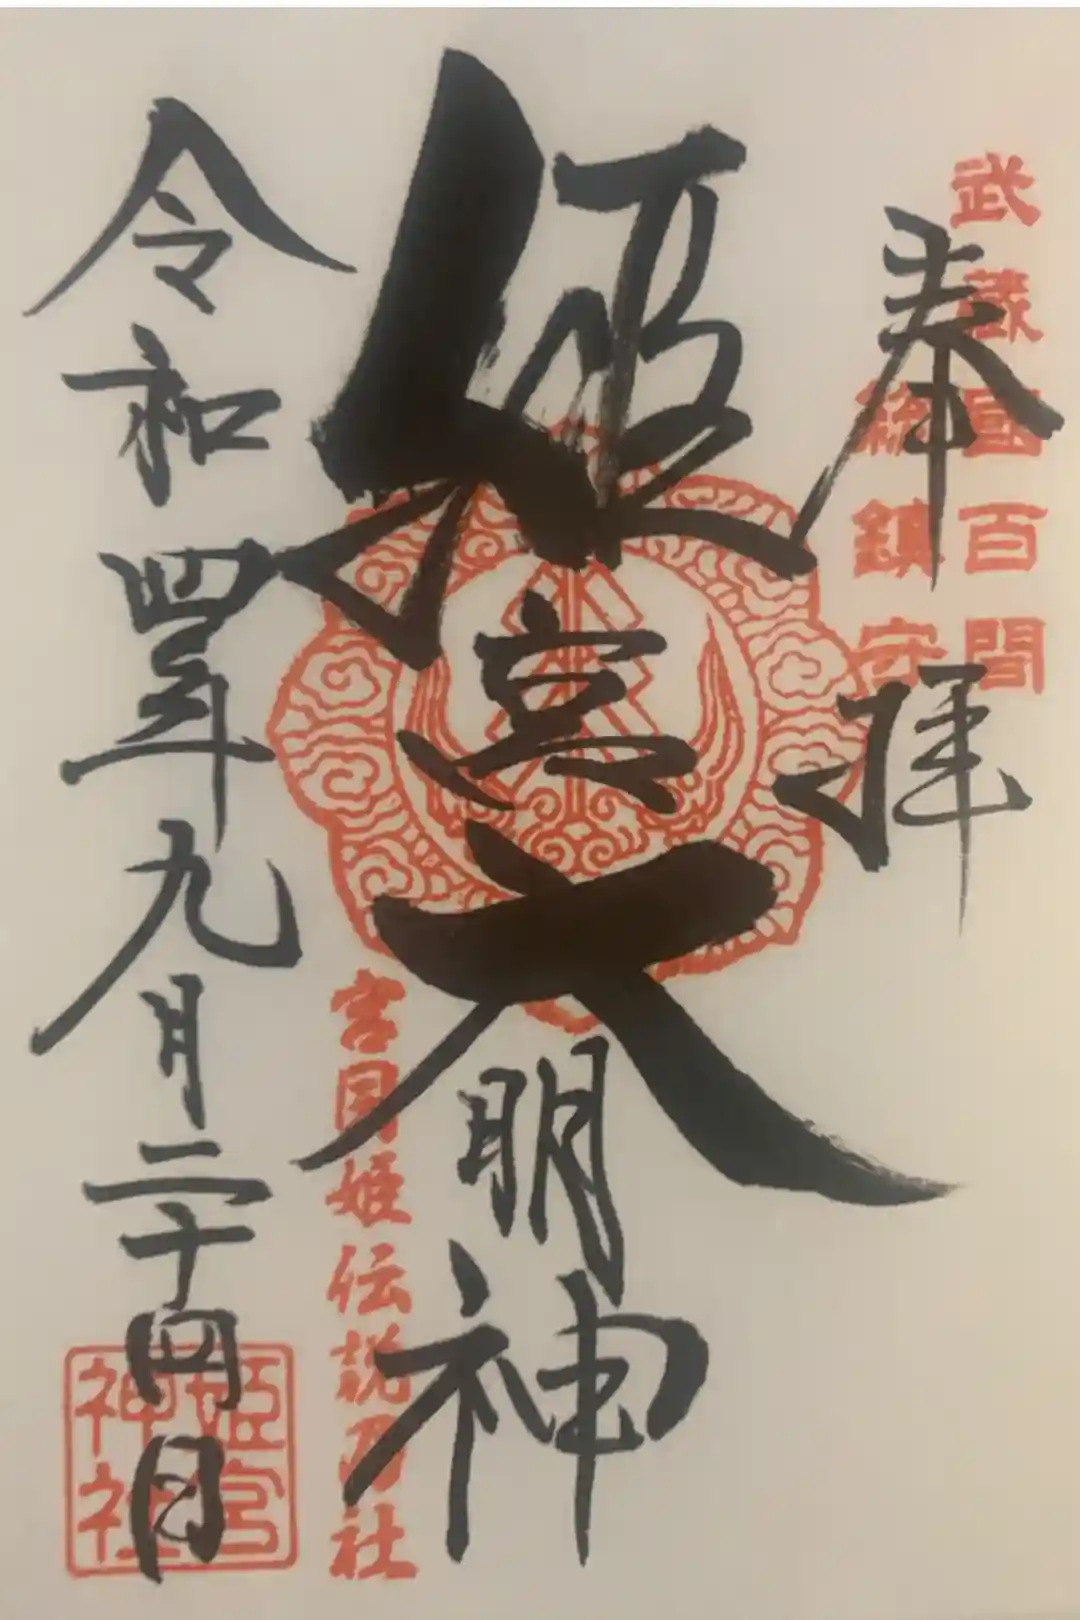 武蔵國百間
総鎮守
奉拝
姫宮大明神
宮目姫伝説乃社
令和四年九月二十四日
姫宮
神社